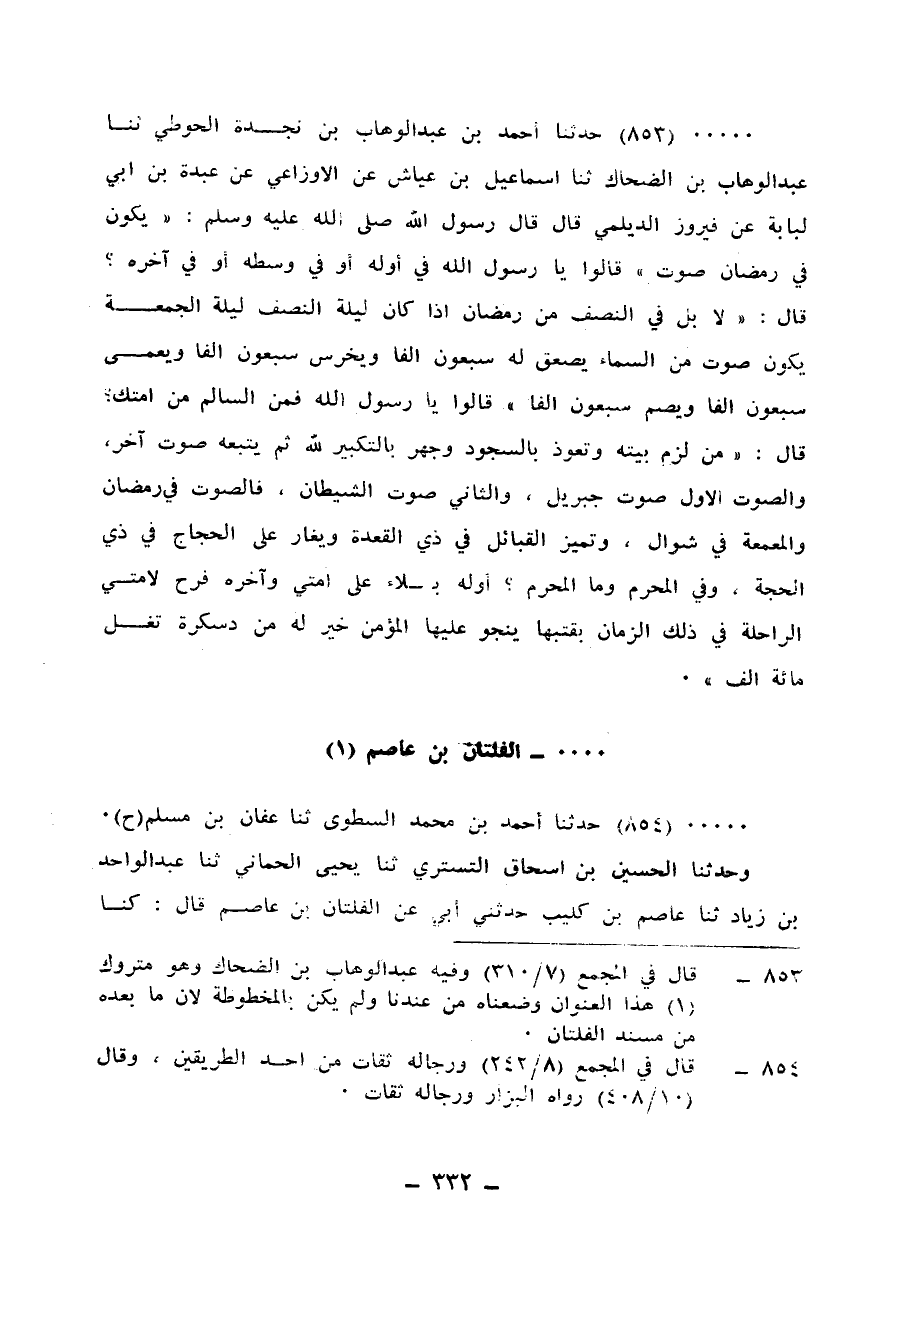 ..... (٨٥٣) حدثنا أحمد بن عبدالوهاب بن نجـــدة الحوطي ثنـــا
عبدالوهاب بن الضحاك ثنا اسماعيل بن عياش عن الاوزاعي عن عبدة بن ابي
لبابة عن فيروز الديلمي قال قال رسول الله صلى الله عليه وسلم : « يكون
في رمضان صوت » قالوا يا رسول الله في أوله أو في وسطه أو في آخره ؟
قال : « لا بل في النصف من رمضان اذا كان ليلة النصف ليلة الجمعــــة
يكون صوت من السماء يصعق له سبعون الفا ويخرس سبعون الفا ويعمـــى
سبعون الفا ويصم سبعون الفا » قالوا يا رسول الله فمن السالم من امتك؟
قال : « من لزم بيته وتعوذ بالسجود وجهر بالتكبير لله ثم يتبعه صوت آخر،
والصوت الاول صوت جبريل ، والثاني صوت الشيطان ، فالصوت في رمضان
والمعمعة في شوال ، وتميز القبائل في ذي القعدة ويغار على الحجاج في ذي
الحجة ، وفي المحرم وما المحرم ؟ أوله بـلاء على امتي وآخره فرح لامتـــي
الراحلة في ذلك الزمان بقتبها ينجو عليها المؤمن خير له من دسكرة تغـــل
مائة الف » .
.... ـ الفلتان بن عاصم (١)
..... (٨٥٤) حدثنا أحمد بن محمد السطوى ثنا عفان بن مسلم(ح).
وحدثنا الحسين بن اسحاق التستري ثنا يحيى الحماني ثنا عبدالواحد
بن زياد ثنا عاصم بن كليب حدثني أبي عن الفلتان بن عاصـم قال : كنـــا
٨٥٣ ـ قال في المجمع (٣١٠/٧) وفيه عبدالوهاب بن الضحاك وهو متروك
(١) هذا العنوان وضعناه من عندنا ولم يكن بالمخطوطة لان ما بعده
من مسند الفلتان .
٨٥٤ ـ قال في المجمع (٢٤٢/٨) ورجاله ثقات من احـد الطريقين ، وقال
(٤٠٨/١٠) رواه البزار ورجاله ثقات .
ـ ٣٣٢ ـ